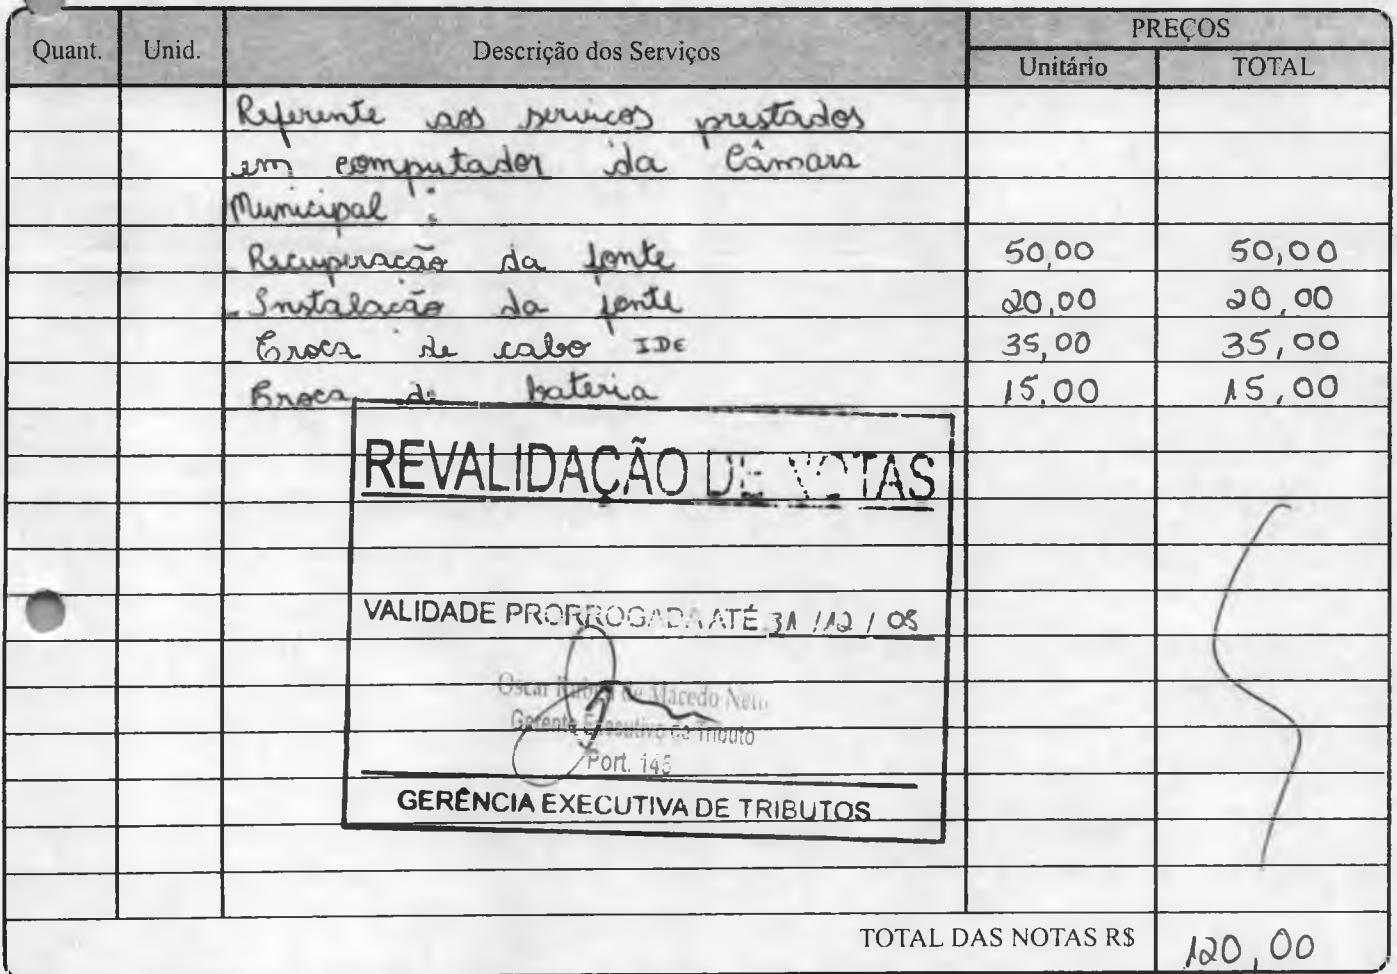 PREÇOS
Quant. Unid. Descrição dos Serviços Unitário TOTAL
Referente aos serviços prestados
em computador da Câmara
Municipal :
Recuperação da fonte 50,00 50,00
- Instalação da fonte 20,00 20,00
Troca de cabo IDE 35,00 35,00
Troca de bateria 15,00 15,00
REVALIDAÇÃO DE NOTAS
VALIDADE PRORROGADA ATÉ 31 / 12 / 08
Oscar de Macedo Neto
Gerente Executivo de Tributo
Port. 145
GERÊNCIA EXECUTIVA DE TRIBUTOS
TOTAL DAS NOTAS R$ 120,00